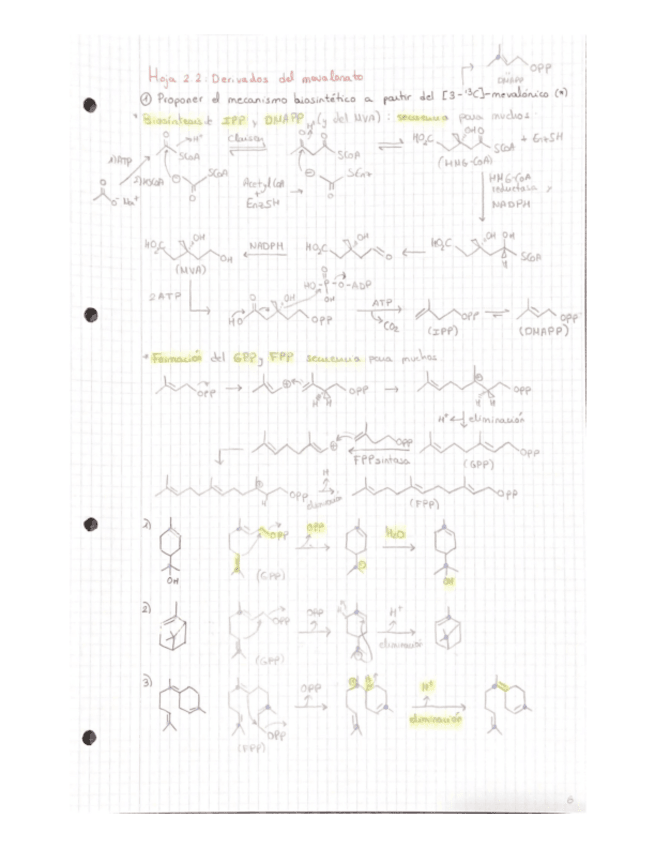 Hoja 2.2: Derivados del mevalonato
OPP
DMAPP
① Proponer el mecanismo biosintético a partir del [3-¹³C]-mevalónico (*)
* Biosíntesis de IPP y DMAPP (y del MVA): secuencia para muchos:
O O H⁺ Claisen O O HO₂C OH O + EnzSH
SCoA SCoA SCoA
1) ATP (HMG-CoA)
2) HSCoA SCoA AcetylCoA SEnz HMG-CoA
O⁻ Na⁺ O + O reductasa y
EnzSH NADPH
HO₂C OH NADPH HO₂C OH HO₂C OH OH
OH O SCoA
(MVA) H
O
2 ATP HO-P-O-ADP
O OH OH ATP
HO OPP CO₂ OPP OPP
(IPP) (DMAPP)
* Formación del GPP y FPP secuencia para muchos
OPP OPP OPP
H H H H
H⁺ eliminación
OPP OPP
FPP sintasa (GPP)
H
OPP eliminación OPP
(FPP)
1) OPP OPP H₂O
OH (GPP) OH
2) OPP OPP H H⁺
(GPP) eliminació
3) OPP H H⁺
OPP eliminación
(FPP)
6